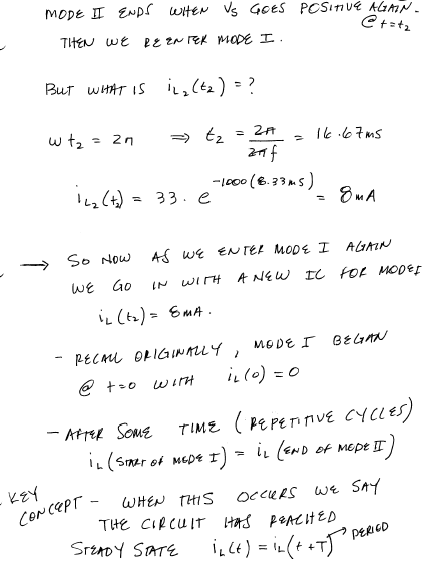 MODE II ENDS WHEN VS GOES POSITIVE AGAIN.
@ t=t₂
THEN WE REENTER MODE I.
BUT WHAT IS i_L₂(t₂) = ?
ωt₂ = 2π ⇒ t₂ = 2π/2πf = 16.67ms
i_L₂(t₂) = 33 · e^(-1000(8.33ms)) = 8mA
→ SO NOW AS WE ENTER MODE I AGAIN
WE GO IN WITH A NEW IC FOR MODE I
i_L(t₂) = 8mA.
- RECALL ORIGINALLY, MODE I BEGAN
@ t=0 WITH i_L(0) = 0
- AFTER SOME TIME (REPETITIVE CYCLES)
i_L(START OF MODE I) = i_L(END OF MODE II)
KEY CONCEPT - WHEN THIS OCCURS WE SAY
THE CIRCUIT HAS REACHED
STEADY STATE i_L(t) = i_L(t+T) → PERIOD